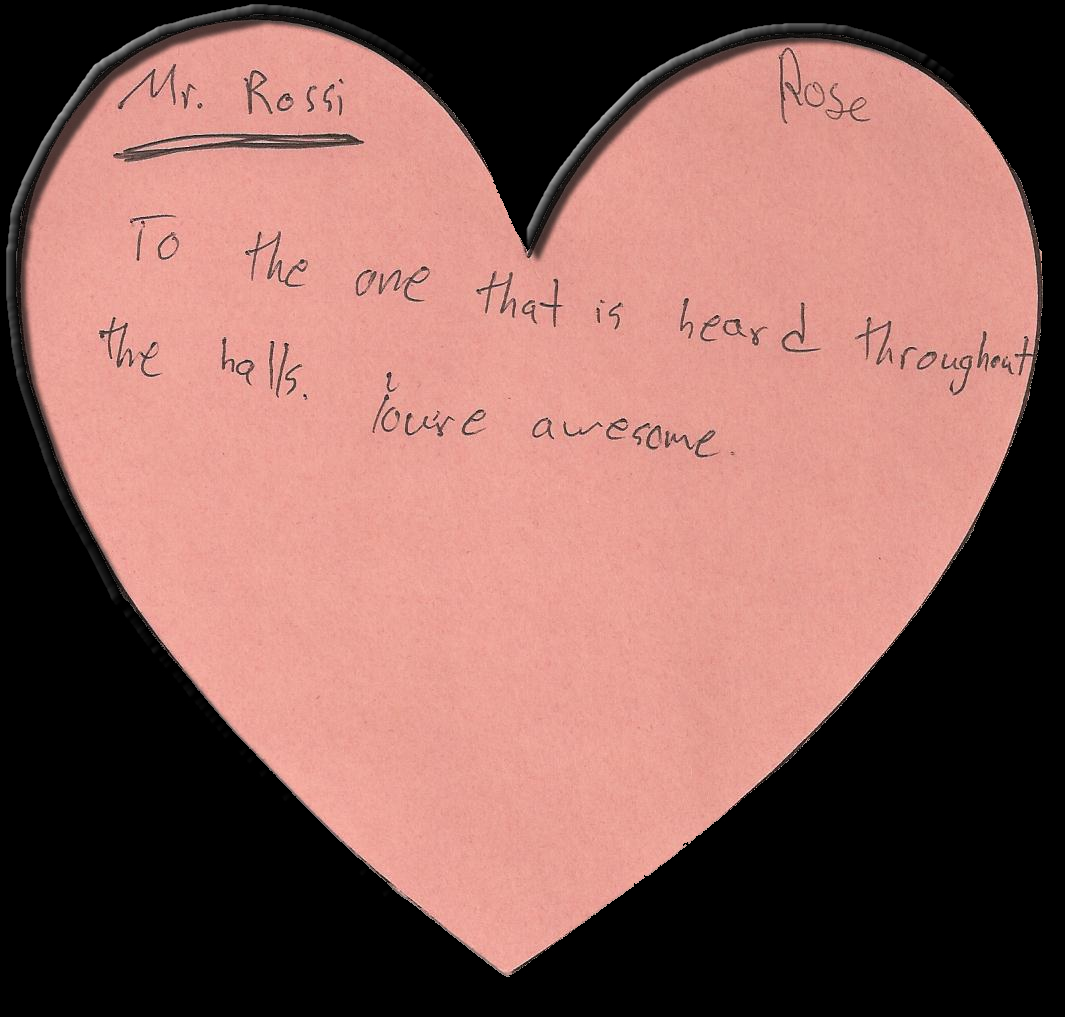 Mr. Rossi
Rose
To the one that is heard throughout
the halls. You're awesome.